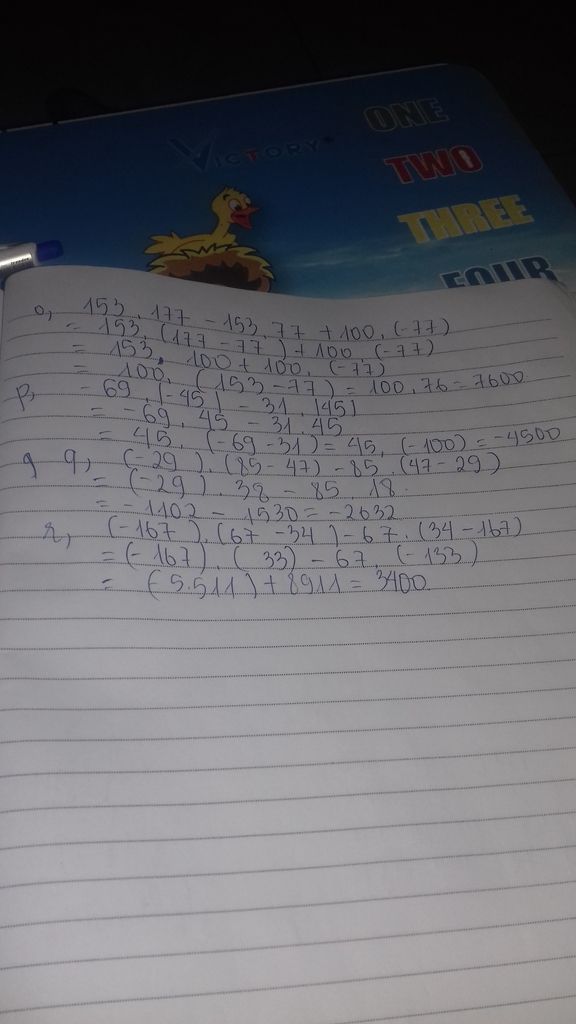 VICTORY
ONE
TWO
THREE
FOUR
o, 153 . 177 - 153 . 77 + 100 . (-77)
= 153 . (177 - 77) + 100 . (-77)
= 153 . 100 + 100 . (-77)
= 100 . (153 - 77) = 100 . 76 = 7600
p, - 69 . |-45| - 31 . |45|
= - 69 . 45 - 31 . 45
= 45 . (-69 - 31) = 45 . (-100) = -4500
q q, (-29) . (85 - 47) - 85 . (47 - 29)
= (-29) . 38 - 85 . 18
= - 1102 - 1530 = - 2632
r, (-167) . (67 - 34) - 67 . (34 - 167)
= (-167) . (33) - 67 . (-133)
= (5.511) + 8911 = 3400